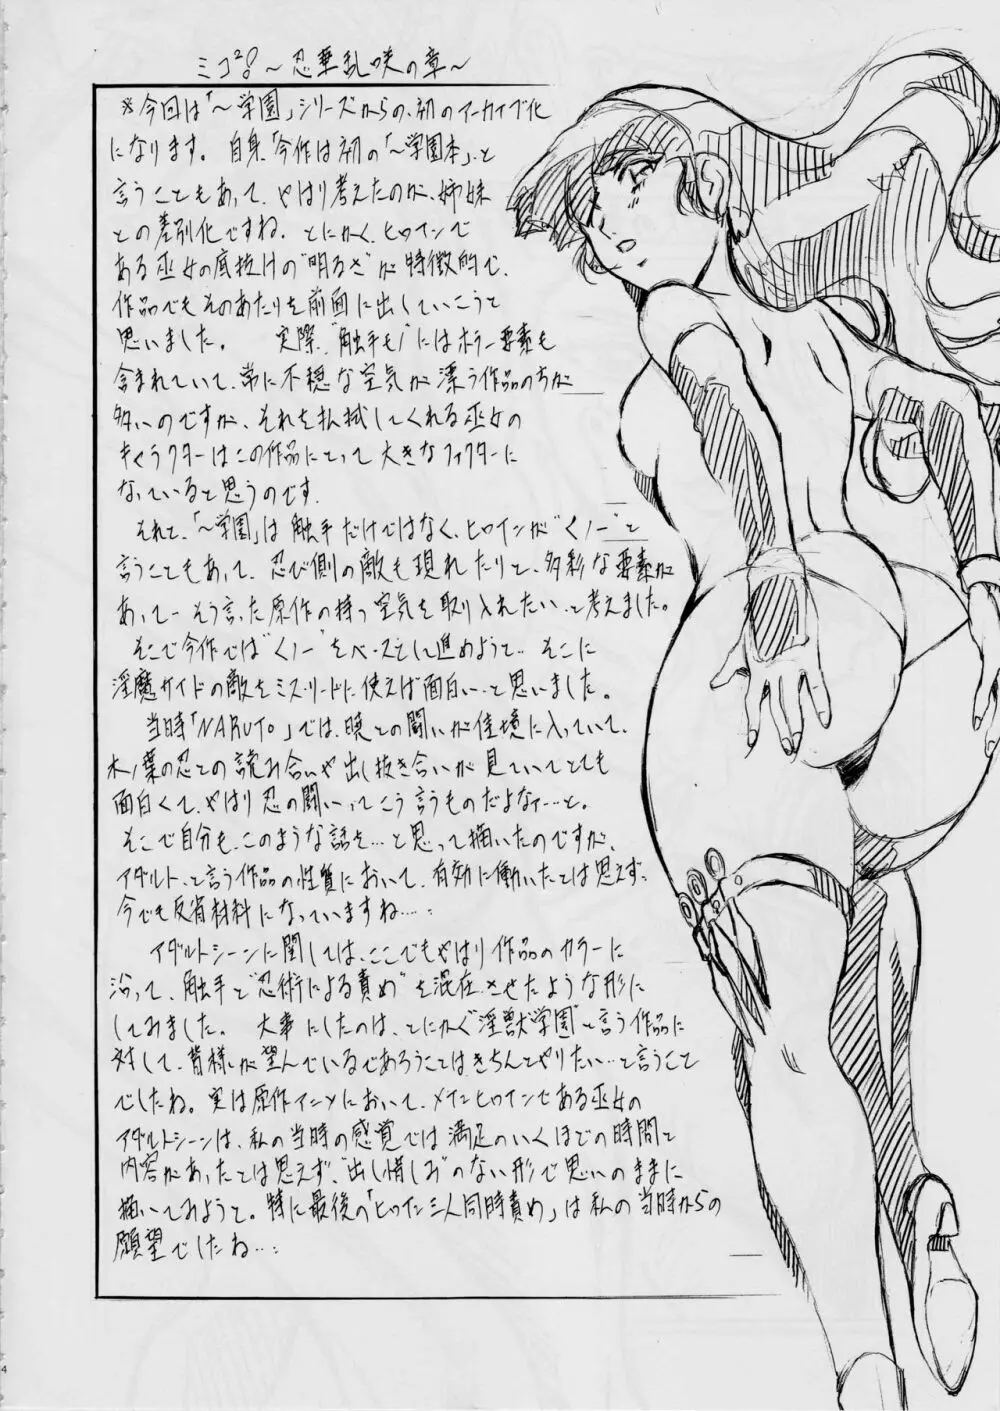 ミコ²8〜忍華乱咲の章〜
※今回は「〜学園」シリーズからの、初のアーカイブ化
になります。自身、今作は初の「〜学園本」と
言うこともあって、やはり考えたのが、姉妹
との差別化ですね。とにかく、ヒロインで
ある巫女の底抜けの“明るさ”が特徴的で、
作品でもそのあたりを前面に出していこうと
思いました。 実際、“触手モノ”にはホラー要素も
含まれていて、常に不穏な空気が漂う作品の方が
多いのですが、それを払拭してくれる巫女の
キャラクターはこの作品にとって大きなファクターに
なっていると思うのです。
それと、「〜学園」は触手だけではなく、ヒロインが“くノ一”と
言うこともあって、忍び側の敵も現れたりと、多彩な要素が
あって…そう言った原作の持つ空気を取り入れたい…と考えました。
そこで今作では“くノ一”をベースとして進めようと…そこに
淫魔サイドの敵をミスリードに使えば面白い…と思いました。
当時「NARUTO」では、暁との闘いが佳境に入っていて、
木ノ葉の忍との読み合いや出し抜き合いが見ていてとても
面白くて、やはり忍の闘いってこう言うものだよなァ…と。
そこで自分も、このような話を…と思って描いたのですが、
アダルト、と言う作品の性質において、有効に働いたとは思えず、
今でも反省材料になっていますね…：
アダルトシーンに関しては、ここでもやはり作品のカラーに
沿って、触手と“忍術による責め”を混在させたような形に
してみました。大事にしたのは、とにかく“淫獣学園”と言う作品に
対して、皆様が望んでいるであろうことはきちんとやりたい…と言うこと
でしたね。実は原作アニメにおいて、メインヒロインである巫女の
アダルトシーンは、私の当時の感覚では満足のいくほどの時間と
内容があったとは思えず、“出し惜しみ”のない形で思いのままに
描いてみようと。特に最後の「ヒロイン三人同時責め」は私の当時からの
願望でしたね…：
4